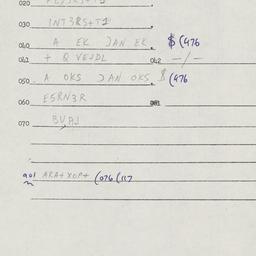 020
030 INT3RS+T1
040 A EK JAN EK $ (476
041 + Q VEJDL 042 -/-
050 A OKS JAN OKS $ (476
060 ESRN3R 081
070 BVAJ
901 ARA+XOP+ (076 (117